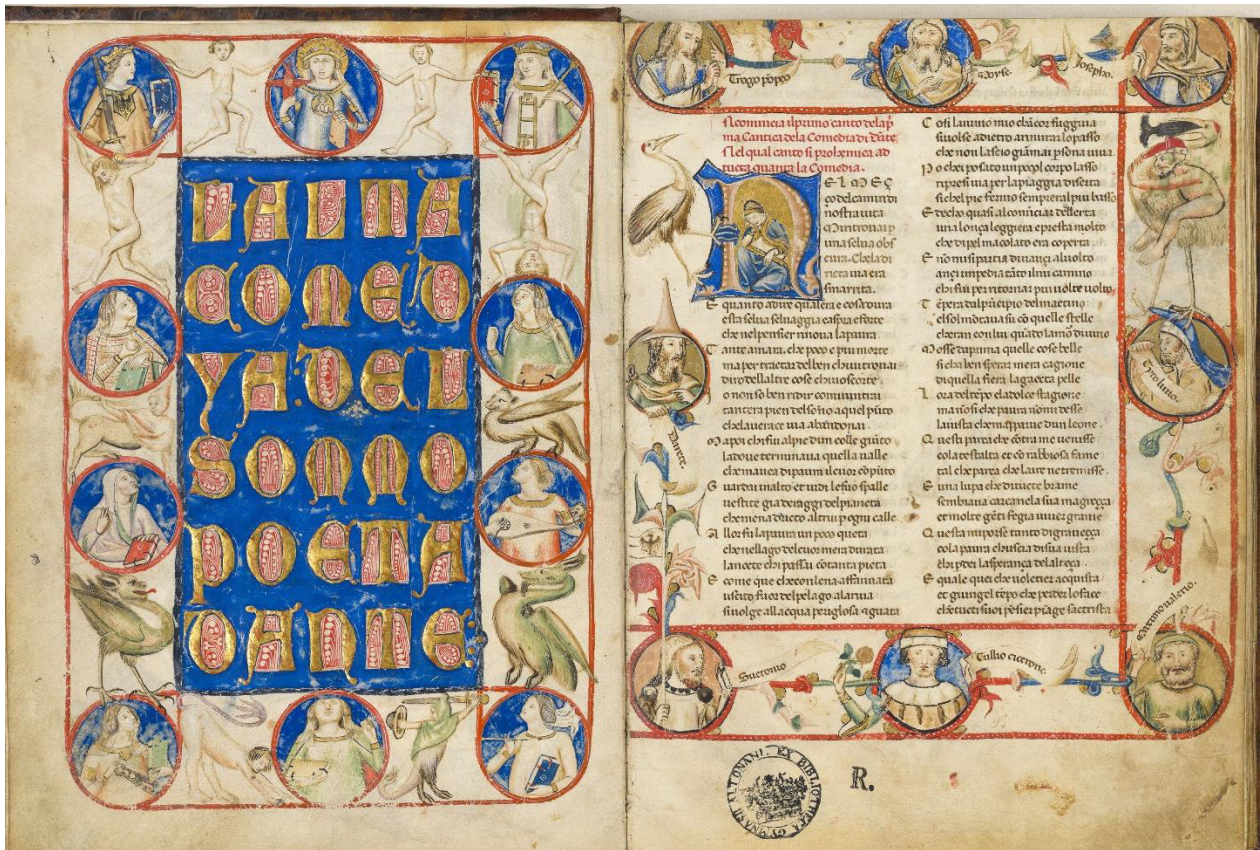 LALTA
COMED
YA:DEL
SOMMO
POETA
DANTE:
Trogo põpeo
Moyse.
Iosepho.
Si comincia il primo canto dela p̄
ma Cantica dela Comedia di Dāte
Nel qual canto si prohemiça ad
tucta quanta la Comedia.
NEL MEÇ
ço del camin di
nostra uita
Mi ritrouai p
una selua obs
cura. Che la di
ricta uia era
smarrita.
E quanto adire qual era e cosa dura
esta selua seluaggia e aspra e forte
che nel pensier rinoua la paura
T ante amara. che poco e piu morte
ma per tractar del ben chiui trouai
diro dellaltre cose chiuo scorte.
I o non so ben redir comuuintrai
tantera pien del sōno a quel pūto
che la uerace uia abandonai.
M a poi chi fui alpie dun colle giūto
la doue terminaua quella ualle
che mauea di paura il cuor cōpūto
G uardai inalto et uidi le sue spalle
uestite gia de raggi del pianeta
che mena dricto altrui p ogni calle
A llor fu la paura un poco queta
che nel lago del cuor mera durata
la nocte chi passai cō tanta pieta
E come que che con lena affannata
uscito fuor del pelago ala riua
si uolge all acqua periglosa e guata
C osi lanimo mio chācor fuggiua
si uolse adietro a rimirar lo passo
che non lascio giāmai psona uiua
P o chei posato un poco il corpo lasso
ripresi uia per la piaggia diserta
si chel pie fermo sempre era l piu basso
E t ecco quasi al comīciar dellerta
una lonça leggiera e presta molto
che di pel macolato era coperta.
E nō mi si partia dināçi al uolto
ançi impedia tāto il mi camino
chi fui per ritornar piu uolte uolto
T empera dal prīcipio del mactino
el sol mōtaua su cō quelle stelle
cheran con lui quādo lamor diuino
M osse da prima quelle cose belle
si cha ben sperar mera cagione
di quella fiera la gaecta pelle
L ora del tēpo e la dolce stagione
ma nō si che paura nō mi desse
la uista che mapparue dun leone.
Q uesti parea che cōtra me uenisse
cola testalta et cō rabbiosa fame
tal che parea che laere ne tremisse.
E una lupa che di tucte brame
sembiaua carca nela sua magreçça
et molte gēti fe gia uiuer grame
Q uesta mi porse tanto di graueçça
cola paura chuscia di sua uista
chi perdei la sperança del alteça.
E quale quei che uolētier acquista
et giungel tēpo che perder lo face
che tucti suoi pēsier piāge e sactrista
Darete.
Sueronio
Tullio cicerone.
EX BIBLIOTHECA GYMNASII ALTONANI
R.